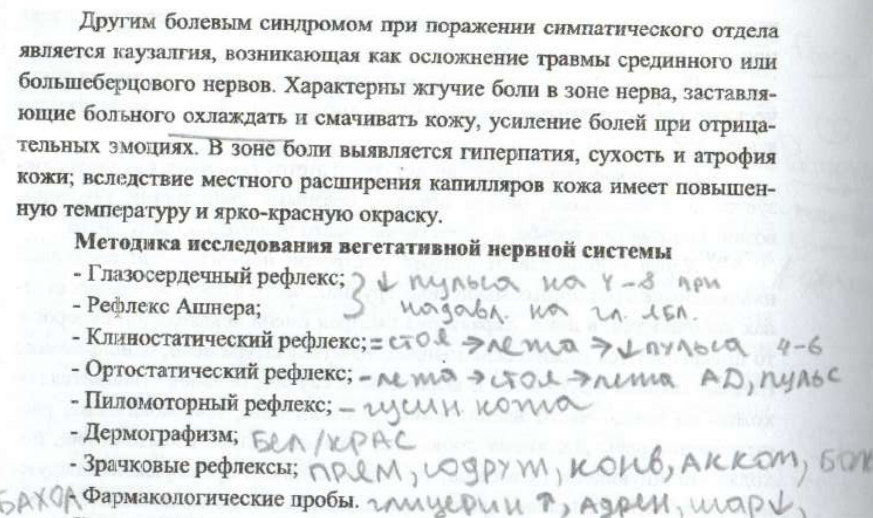 Другим болевым синдромом при поражении симпатического отдела
является каузалгия, возникающая как осложнение травмы срединного или
большеберцового нервов. Характерны жгучие боли в зоне нерва, заставля-
ющие больного охлаждать и смачивать кожу, усиление болей при отрица-
тельных эмоциях. В зоне боли выявляется гиперпатия, сухость и атрофия
кожи; вследствие местного расширения капилляров кожа имеет повышен-
ную температуру и ярко-красную окраску.
Методика исследования вегетативной нервной системы
- Глазосердечный рефлекс; } ↓ пульса на 4-8 при
- Рефлекс Ашнера; надавл. на гл. ябл.
- Клиностатический рефлекс; = стоя → лежа → ↓ пульса 4-6
- Ортостатический рефлекс; - лежа → стоя → лежа АД, пульс
- Пиломоторный рефлекс; - гусин кожа
- Дермографизм; БЕЛ/КРАС
- Зрачковые рефлексы; прям, содруж, конв, акком,
- Фармакологические пробы. глицерин ↑, адрен,